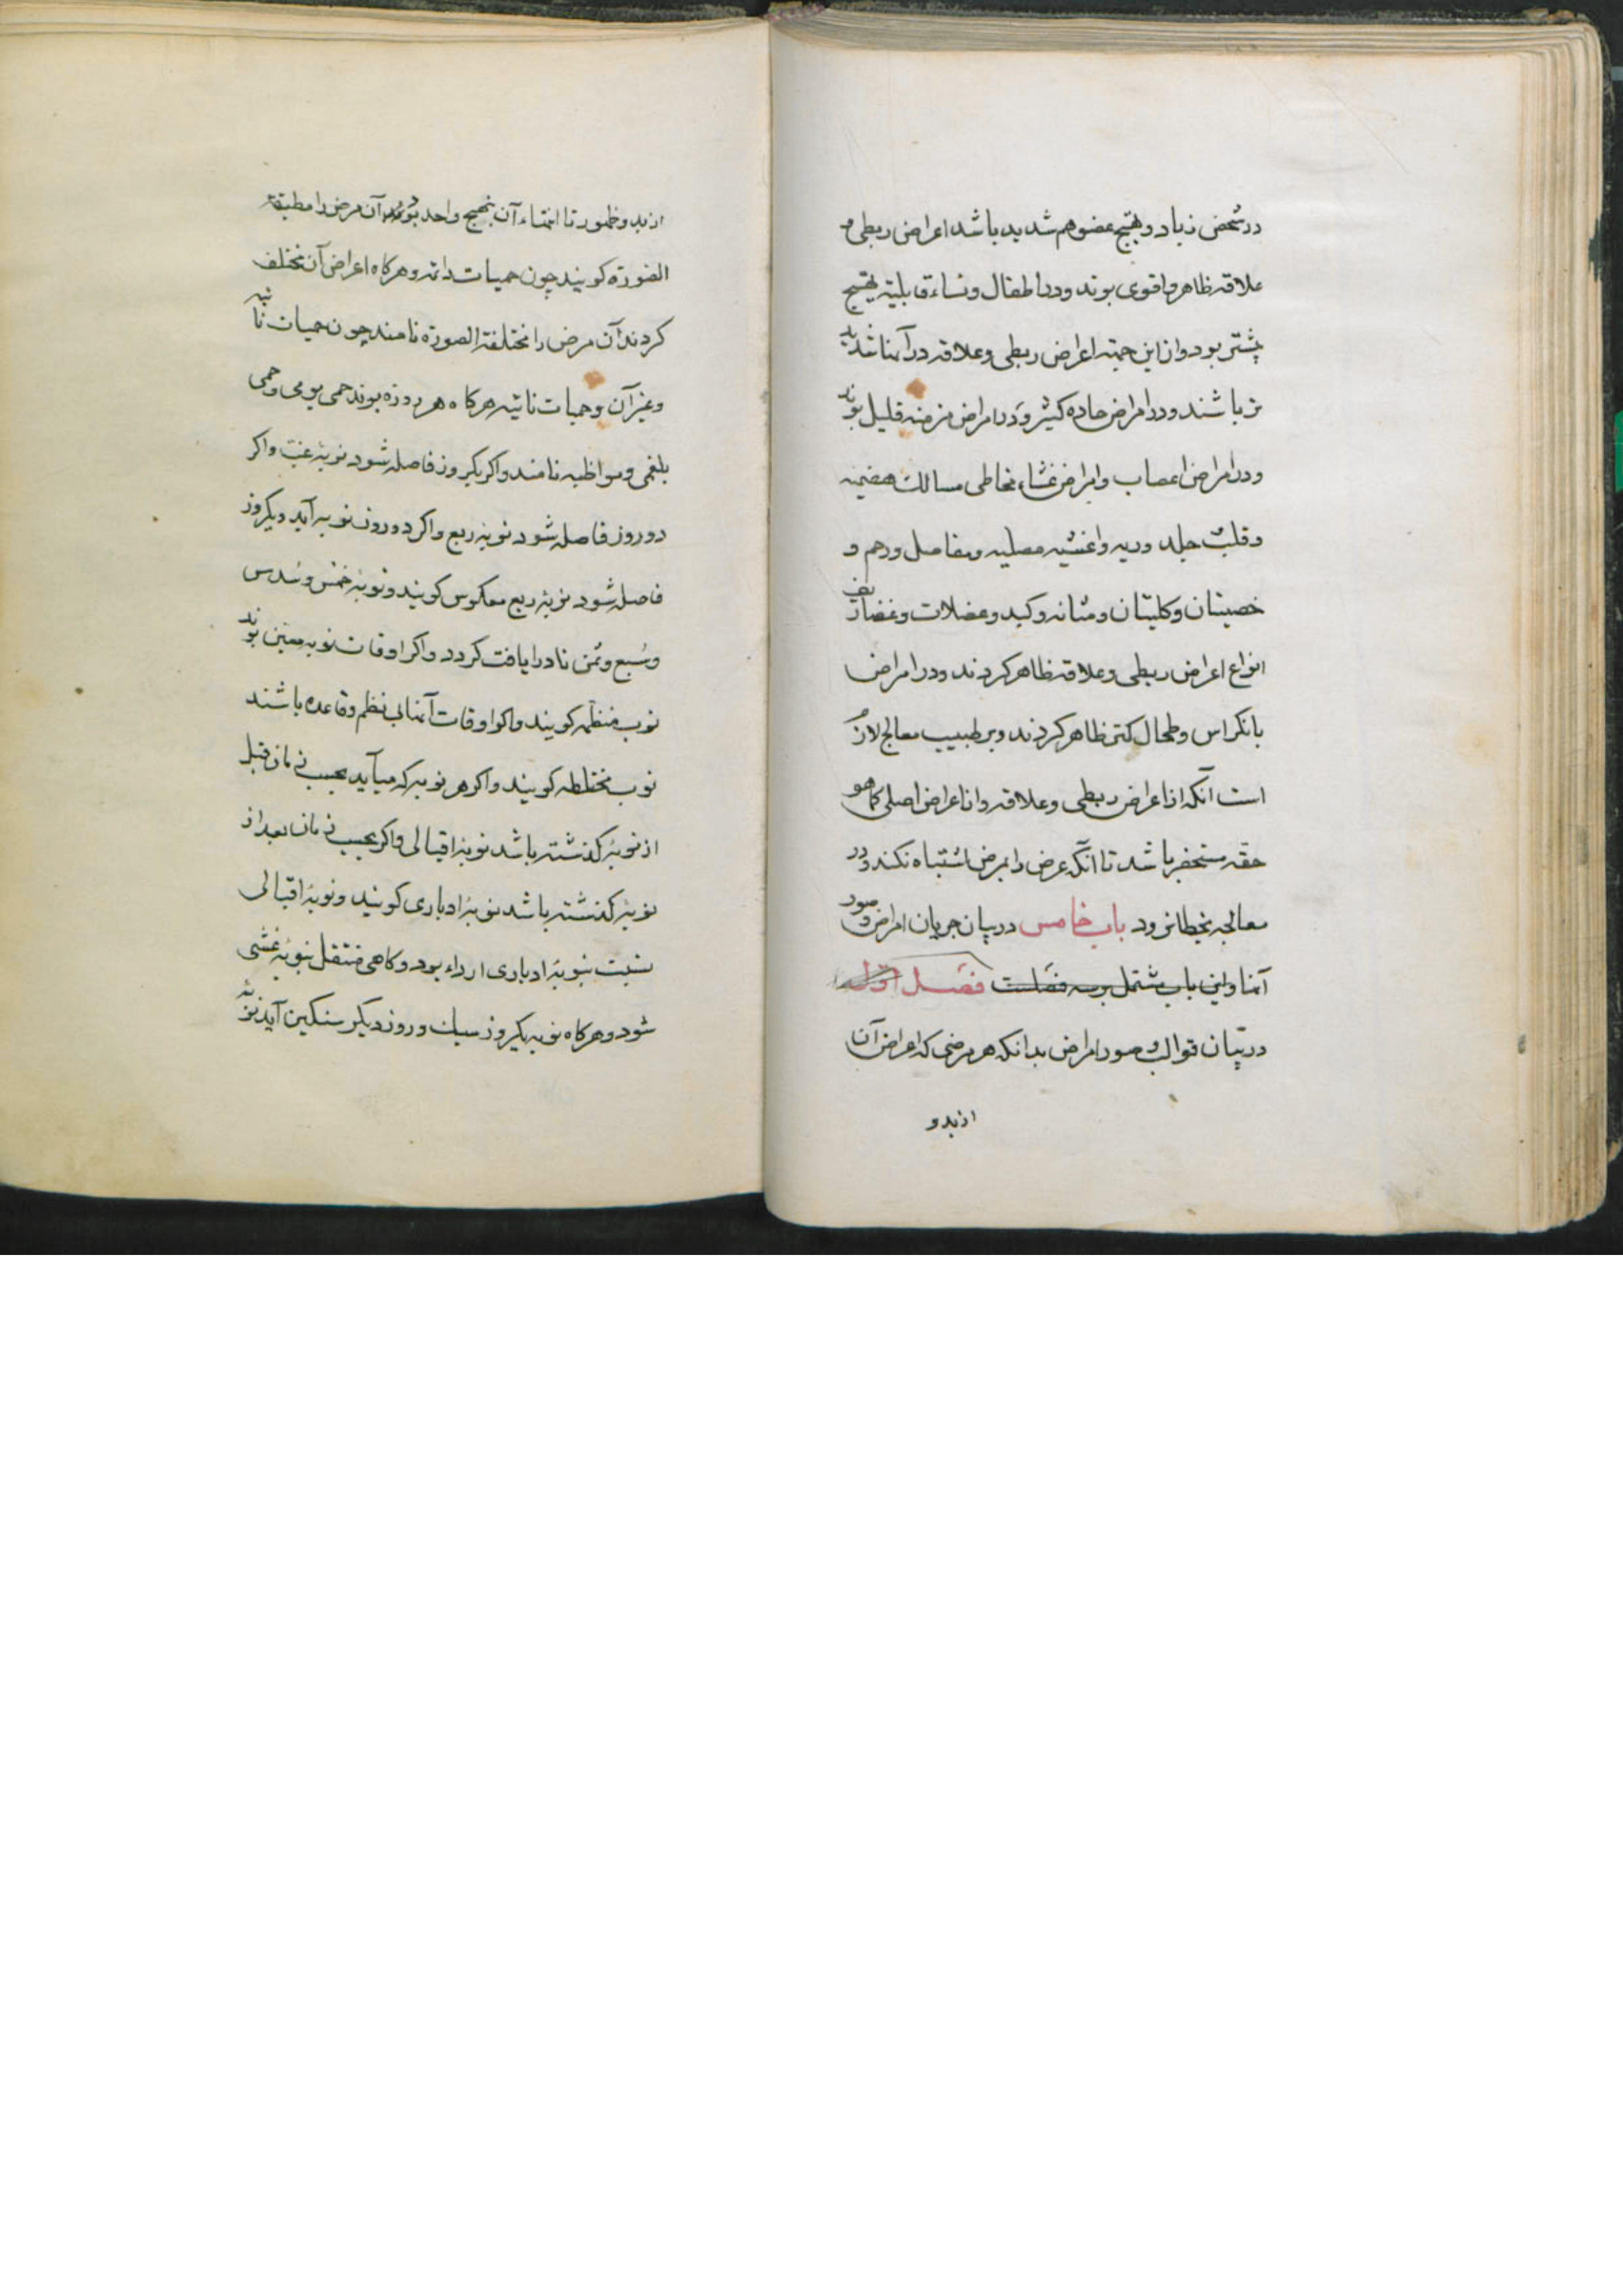 در شخص زیاد و تهیج عضو هم شدید باشد اعراض ربطی و
علاقه ظاهر و اقوی بوند و در اطفال و نساء قابلیة تهیج
بیشتر بود و از این جهته اعراض ربطی و علاقه در آنها شدید
تر باشند و در امراض حاده کثیر و در امراض مزمنه قلیل بوند
و در امراض اعصاب و امراض غشاء مخاطی مسالک هضمیه
و قلب و جلد و ریه و اغشیه مصلیه و مفاصل و رحم و
خصیتان و کلیتان و مثانه و کبد و عضلات و غضاریف
انواع اعراض ربطی و علاقه ظاهر کردند و در امراض
بانکراس و طحال کمتر ظاهر کردند و بر طبیب معالج لازم
است آنکه از اعراض ربطی و علاقه و از اعراض اصلی کما هو
حقه مستحضر باشد تا آنکه عرض را بمرض اشتباه نکند و در
معالجه بخطا نرود باب خامس در بیان جریان امراض و صور
آنها و این باب مشتمل بر سه فصلست فصل اول
در بیان قوالب و صور امراض بدانکه هر مرضی که اعراض آن
از بدو
از بدو ظهور تا انتهاء آن بنهج واحد بوند آن مرض را مطبقة
الصورة کویند چون حمیات دائمه و هرکاه اعراض آن مختلف
کردند آن مرض را مختلفة الصورة نامند چون حمیات نائبه
و غیر آن و حمیات نائبه هرکاه هر روزه بوند حمی یومی و حمی
بلغمی و مواظبه نامند و اکر یکروز فاصله شود نوبهٔ غب و اکر
دو روز فاصله شود نوبهٔ ربع و اکر دو روز نوبه آید و یکروز
فاصله شود نوبهٔ ربع معکوس کویند و نوبهٔ خمس و سدس
و سبع و ثمن نادرا یافت کردد و اکر اوقات نوبه معین بوند
نوب منظمه کویند و اکر اوقات آنها بی نظم و قاعده باشند
نوب مختلطه کویند و اکر هر نوبه که میآید بحسب زمان قبل
از نوبهٔ کذشته باشد نوبهٔ اقبالی و اکر بحسب زمان بعد از
نوبهٔ کذشته باشد نوبهٔ ادباری کویند و نوبهٔ اقبالی
نسبت بنوبهٔ ادباری ارداء بود و کاهی منتقل بنوبهٔ غشی
شود و هرکاه نوبه یکروز سبک و روز دیکر سنکین آید نوبهٔ